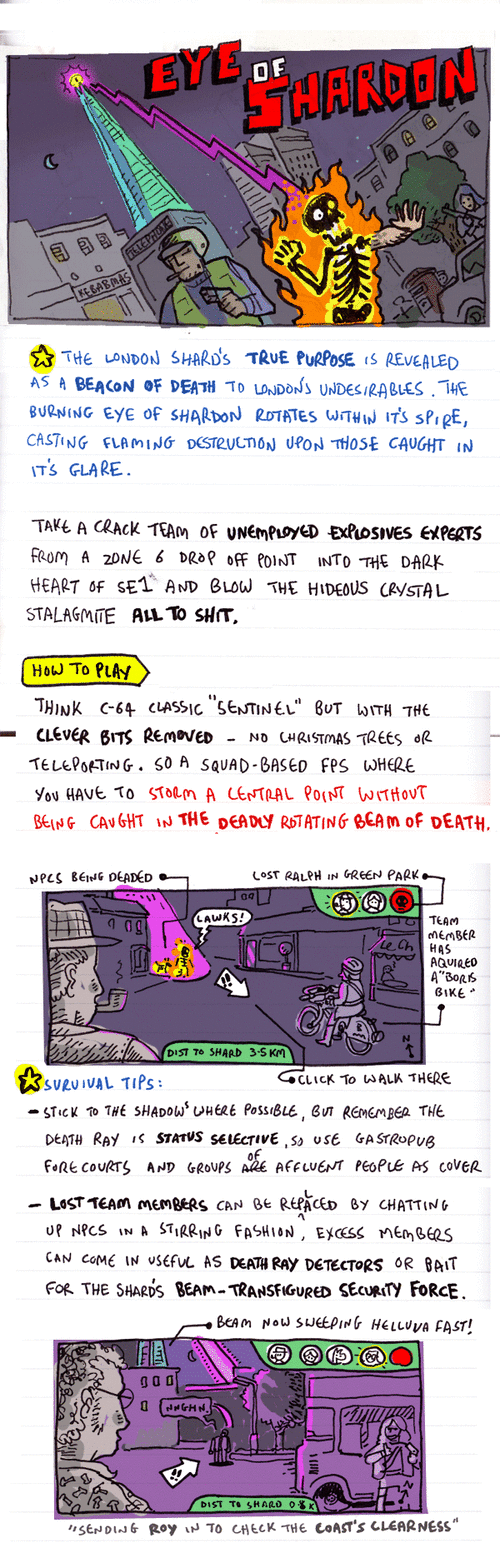 EYE OF SHARDON
TELEPHONE
KEBABMAS
THE LONDON SHARD'S TRUE PURPOSE IS REVEALED
AS A BEACON OF DEATH TO LONDON'S UNDESIRABLES. THE
BURNING EYE OF SHARDON ROTATES WITHIN IT'S SPIRE,
CASTING FLAMING DESTRUCTION UPON THOSE CAUGHT IN
IT'S GLARE.
TAKE A CRACK TEAM OF UNEMPLOYED EXPLOSIVES EXPERTS
FROM A ZONE 6 DROP OFF POINT INTO THE DARK
HEART OF SE1 AND BLOW THE HIDEOUS CRYSTAL
STALAGMITE ALL TO SHIT.
HOW TO PLAY
THINK C-64 CLASSIC "SENTINEL" BUT WITH THE
CLEVER BITS REMOVED - NO CHRISTMAS TREES OR
TELEPORTING. SO A SQUAD-BASED FPS WHERE
YOU HAVE TO STORM A CENTRAL POINT WITHOUT
BEING CAUGHT IN THE DEADLY ROTATING BEAM OF DEATH.
NPCS BEING DEADED
LOST RALPH IN GREEN PARK
LAWKS!
TEAM
MEMBER
HAS
AQUIRED
A "BORIS
BIKE"
!!
Le Ch
N
DIST TO SHARD 3.5KM
CLICK TO WALK THERE
SURVIVAL TIPS:
- STICK TO THE SHADOWS WHERE POSSIBLE, BUT REMEMBER THE
DEATH RAY IS STATUS SELECTIVE, SO USE GASTROPUB
FORECOURTS AND GROUPS OF ARE AFFLUENT PEOPLE AS COVER
- LOST TEAM MEMBERS CAN BE REPLACED BY CHATTING
UP NPCS IN A STIRRING FASHION, EXCESS MEMBERS
CAN COME IN USEFUL AS DEATH RAY DETECTORS OR BAIT
FOR THE SHARD'S BEAM-TRANSFIGURED SECURITY FORCE.
BEAM NOW SWEEPING HELLUVA FAST!
NNGHN.
!!
N
DIST TO SHARD 0.8K
"SENDING ROY IN TO CHECK THE COAST'S CLEARNESS"